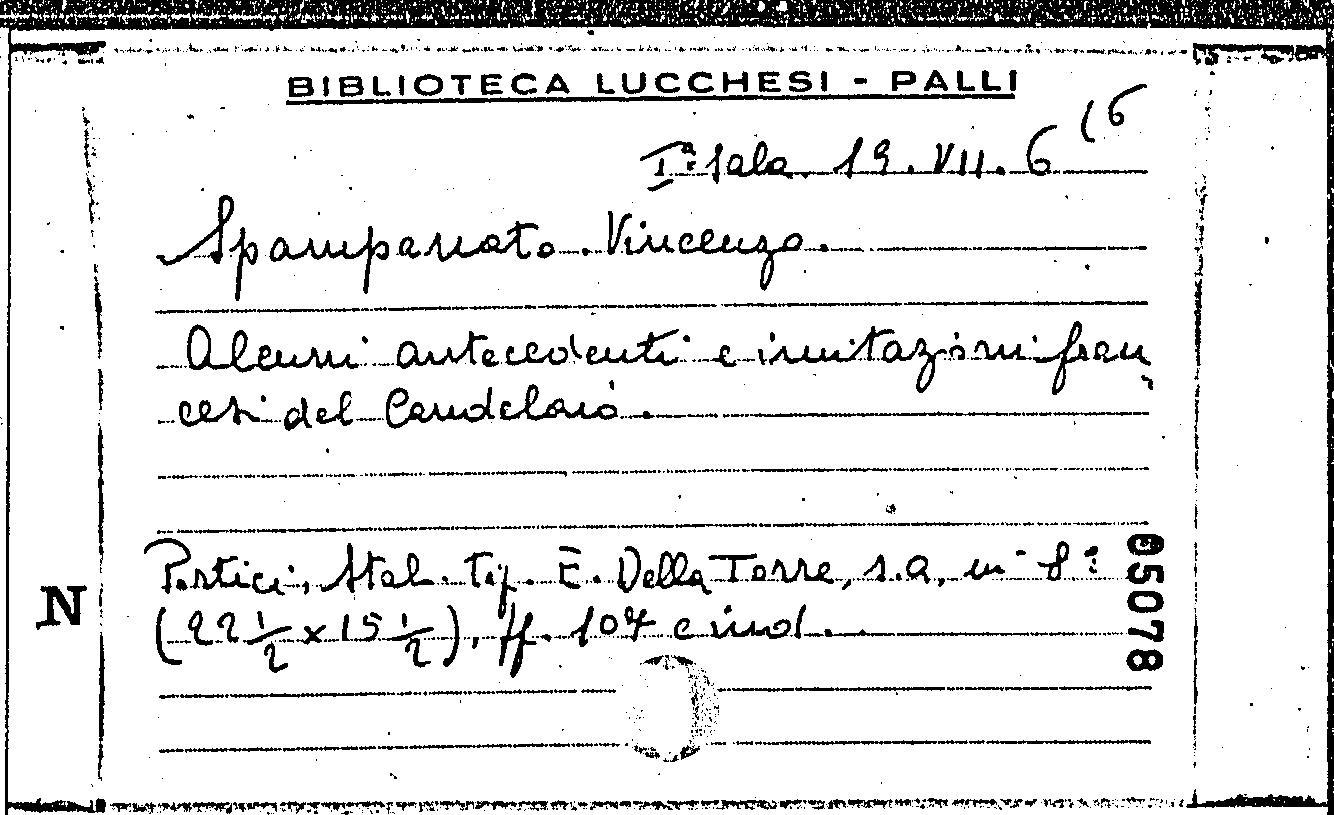 BIBLIOTECA LUCCHESI - PALLI
Iª Sala. 19. VII. 6 (6
Spampanato. Vincenzo.
Alcuni antecedenti e imitazioni fran
cesi del Candelaio.
Portici, Stab. Tip. E. Della Torre, s.a, in 8º
(22 1/2 x 15 1/2), pp. 107 e ind.
N
05078